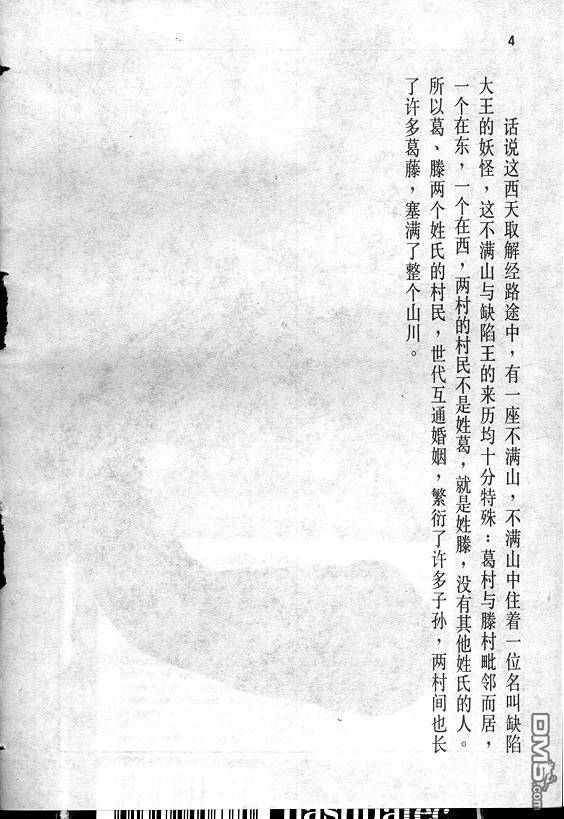 4
话说这西天取解经路途中，有一座不满山，不满山中住着一位名叫缺陷
大王的妖怪，这不满山与缺陷王的来历均十分特殊：葛村与滕村毗邻而居，
一个在东，一个在西，两村的村民不是姓葛，就是姓滕，没有其他姓氏的人。
所以葛、滕两个姓氏的村民，世代互通婚姻，繁衍了许多子孙，两村间也长
了许多葛藤，塞满了整个山川。
DM5.com